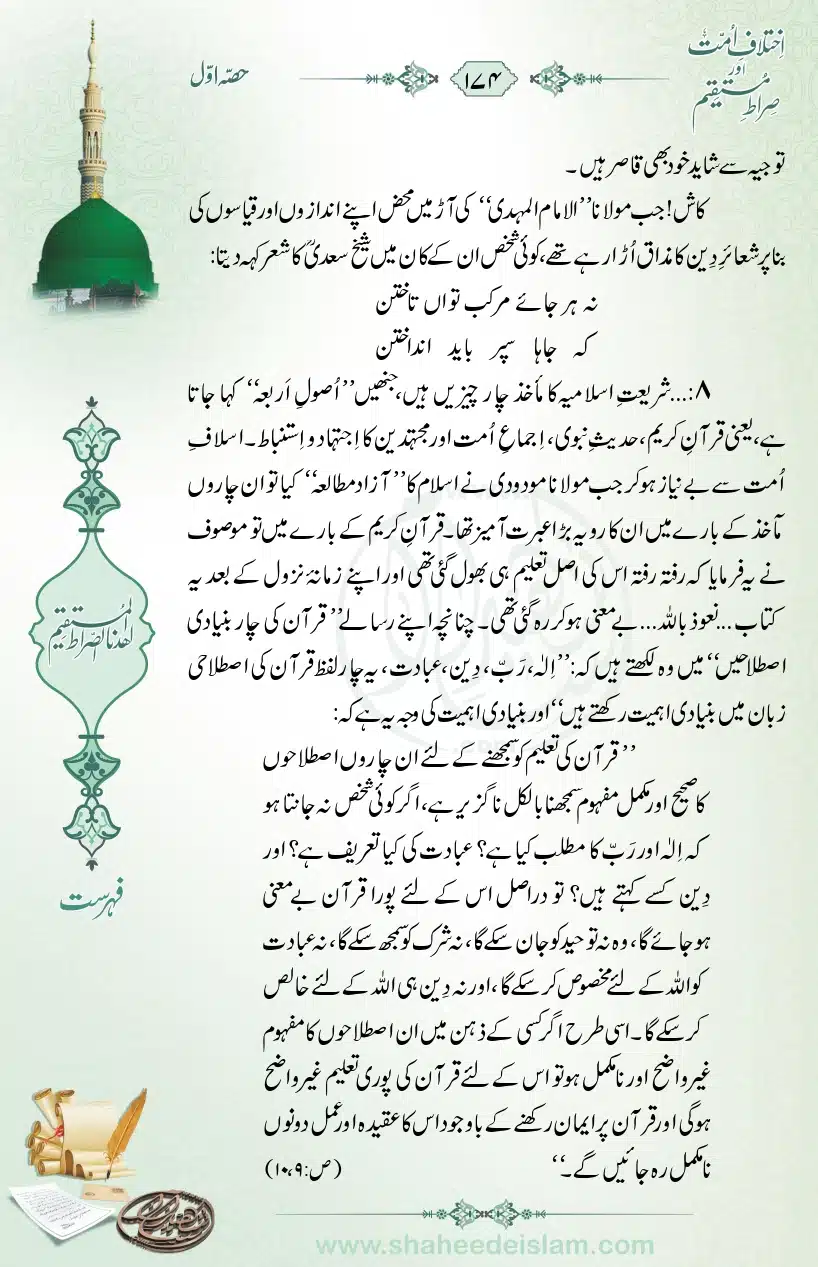 اِختلافِ اُمّت
اور
صِراطِ مُستقیم
۱۷۴
حصّہ اوّل
توجیہ سے شاید خود بھی قاصر ہیں۔
کاش! جب مولانا ’’الامام المہدی‘‘ کی آڑ میں محض اپنے اندازوں اور قیاسوں کی
بنا پر شعائرِ دِین کا مذاق اُڑا رہے تھے، کوئی شخص ان کے کان میں شیخ سعدیؒ کا شعر کہہ دیتا:
نہ ہر جائے مرکب تواں تاختن
کہ جاہا سپر باید انداختن
۸:...شریعتِ اسلامیہ کا مأخذ چار چیزیں ہیں، جنھیں ’’اُصولِ اَربعہ‘‘ کہا جاتا
ہے، یعنی قرآنِ کریم، حدیثِ نبوی، اِجماعِ اُمت اور مجتہدین کا اِجتہاد و اِستنباط۔ اسلافِ
اُمت سے بے نیاز ہوکر جب مولانا مودودی نے اسلام کا ’’آزاد مطالعہ‘‘ کیا تو ان چاروں
مآخذ کے بارے میں ان کا رویہ بڑا عبرت آمیز تھا۔ قرآنِ کریم کے بارے میں تو موصوف
نے یہ فرمایا کہ رفتہ رفتہ اس کی اصل تعلیم ہی بھول گئی تھی اور اپنے زمانۂ نزول کے بعد یہ
کتاب ...نعوذ باللہ... بے معنی ہوکر رہ گئی تھی۔ چنانچہ اپنے رسالے ’’قرآن کی چار بنیادی
اصطلاحیں‘‘ میں وہ لکھتے ہیں کہ: ’’اِلٰہ، رَبّ، دِین، عبادت، یہ چار لفظ قرآن کی اصطلاحی
زبان میں بنیادی اہمیت رکھتے ہیں‘‘ اور بنیادی اہمیت کی وجہ یہ ہے کہ:
’’قرآن کی تعلیم کو سمجھنے کے لئے ان چاروں اصطلاحوں
کا صحیح اور مکمل مفہوم سمجھنا بالکل ناگزیر ہے، اگر کوئی شخص نہ جانتا ہو
کہ اِلٰہ اور رَبّ کا مطلب کیا ہے؟ عبادت کی کیا تعریف ہے؟ اور
دِین کسے کہتے ہیں؟ تو دراصل اس کے لئے پورا قرآن بے معنی
ہوجائے گا، وہ نہ توحید کو جان سکے گا، نہ شرک کو سمجھ سکے گا، نہ عبادت
کو اللہ کے لئے مخصوص کرسکے گا، اور نہ دِین ہی اللہ کے لئے خالص
کرسکے گا۔ اسی طرح اگر کسی کے ذہن میں ان اصطلاحوں کا مفہوم
غیرواضح اور نامکمل ہو تو اس کے لئے قرآن کی پوری تعلیم غیرواضح
ہوگی اور قرآن پر ایمان رکھنے کے باوجود اس کا عقیدہ اور عمل دونوں
نامکمل رہ جائیں گے۔‘‘ (ص:۹، ۱۰)
اهدنا الصراط المستقیم
فہرست
www.shaheedeislam.com